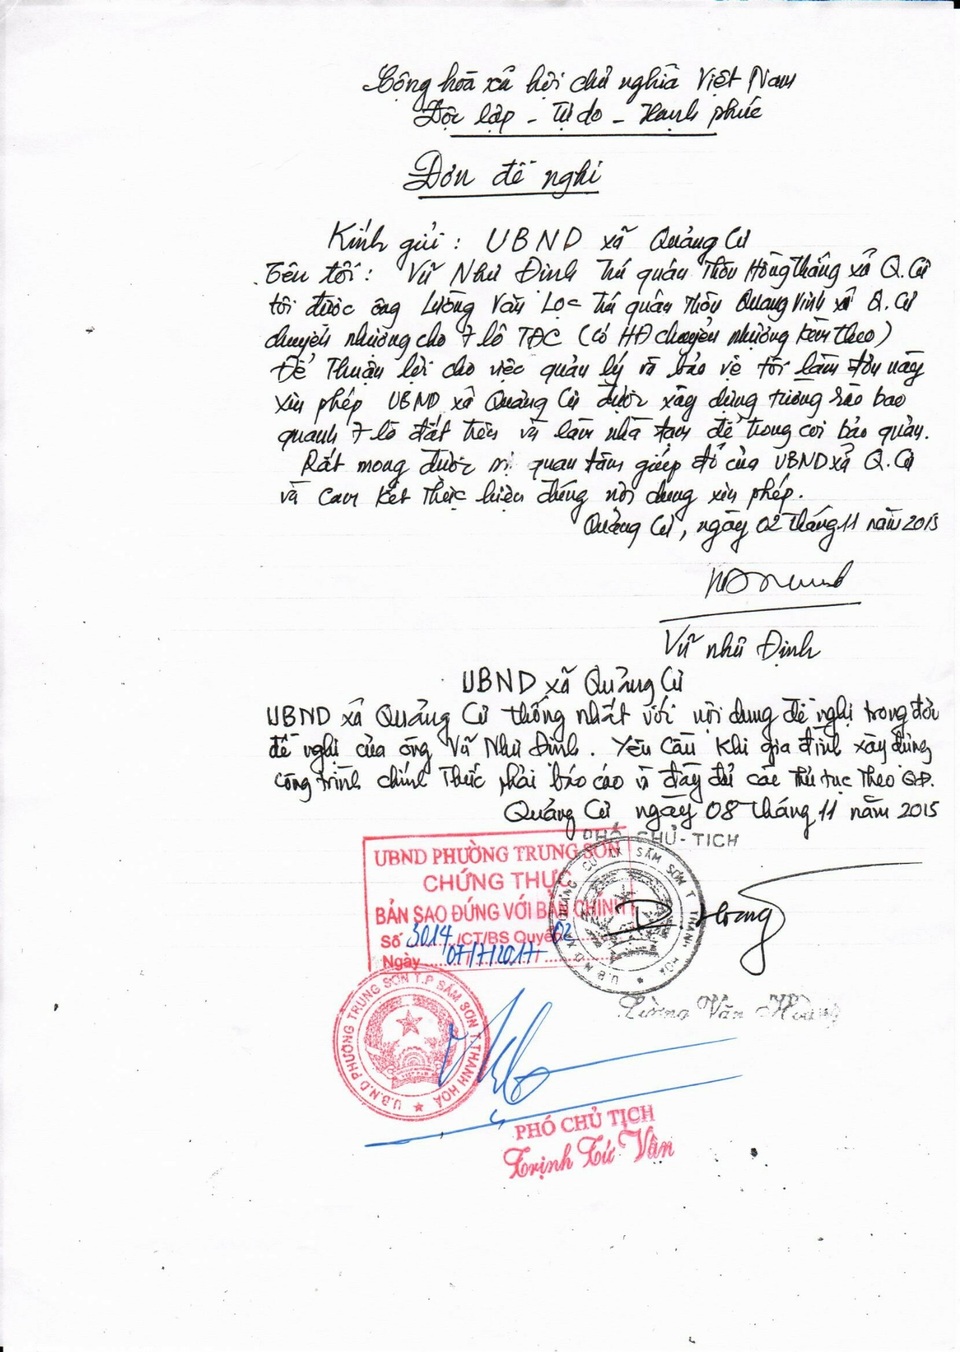 Cộng hoà xã hội chủ nghĩa Việt Nam
Độc lập - Tự do - Hạnh phúc
Đơn đề nghị
Kính gửi : UBND xã Quảng Cư
Tên tôi : Vũ Như Đinh Trú quán Thôn Hồng Thắng xã Q. Cư
tôi được ông Lường Văn Lọc Trú quán Thôn Quang Vinh xã Q. Cư
chuyển nhượng cho 7 lô TĐC (có HĐ chuyển nhượng kèm theo)
Để Thuận lợi cho việc quản lý và bảo vệ tôi làm đơn này
xin phép UBND xã Quảng Cư được xây dựng tường rào bao
quanh 7 lô đất trên và làm nhà tạm để trong coi bảo quản.
Rất mong được sự quan tâm giúp đỡ của UBND xã Q. Cư
và cam kết thực hiện đúng nội dung xin phép.
Quảng Cư, ngày 02 tháng 11 năm 2015
Vũ như Định
UBND xã Quảng Cư
UBND xã Quảng Cư thống nhất với nội dung đề nghị trong đơn
đề nghị của ông Vũ Như Đinh. Yêu cầu khi gia đình xây dựng
công trình chính thức phải báo cáo và đầy đủ các thủ tục theo QĐ.
Quảng Cư ngày 08 tháng 11 năm 2015
PHÓ CHỦ-TỊCH
UBND PHƯỜNG TRUNG SƠN
CHỨNG THỰC
BẢN SAO ĐÚNG VỚI BẢN CHÍNH
Số 3014 /CT/BS Quyển 02
Ngày 07/7/2017
U.B.N.D XÃ QUẢNG CƯ TX SẦM SƠN T THANH HOÁ
Hoàng
Lường Văn Hoàng
U.B.N.D PHƯỜNG TRUNG SƠN T.P SẦM SƠN T.THANH HOÁ
PHÓ CHỦ TỊCH
Trịnh Tứ Vân